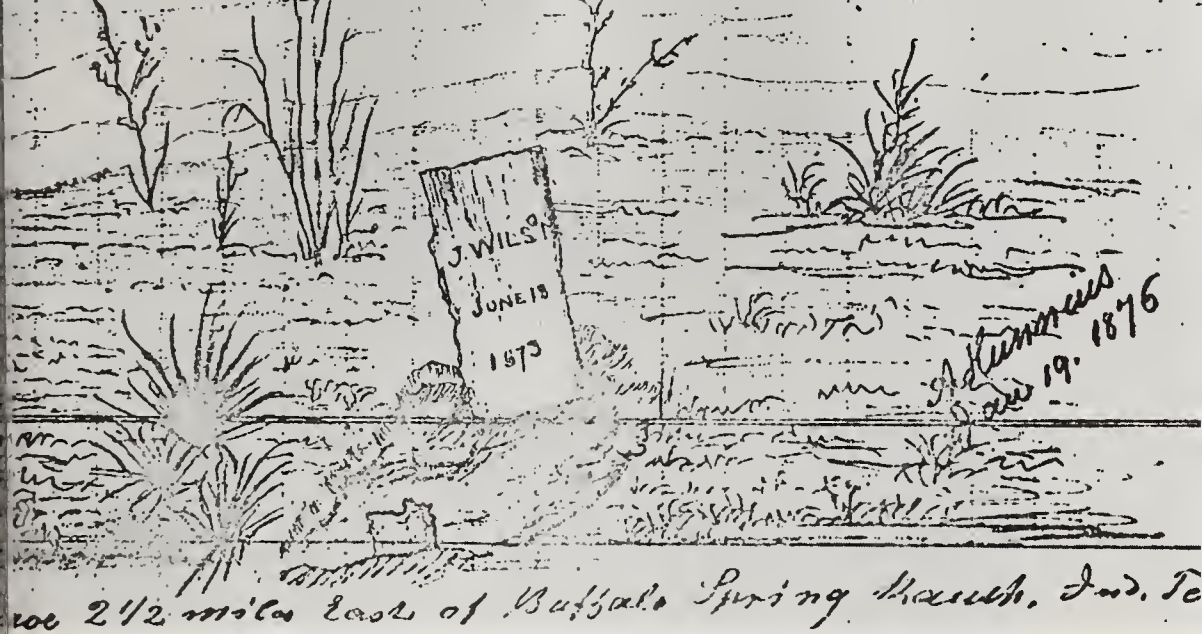 J. WILS
JUNE 18
1873
A Hunnius
Jan 19. 1876
2 1/2 miles East of Buffalo Spring Ranch. Ind. Te